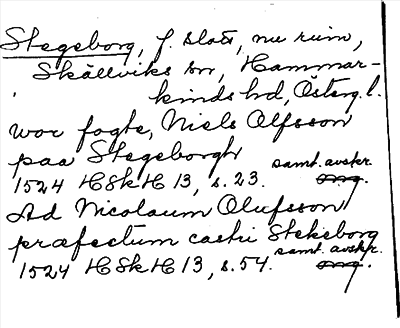 Stegeborg, f. slott, nu ruin,
Skällviks sn, Hammar-
kinds hd, Österg. l.
wor fogte, Niels Olfsson
paa Stegeborgh
samt. avskr.
1524 HSkH 13, s. 23. 
Ad Nicolaum Olufsson
præfectum castri Stekeborg
samt. avskr.
1524 HSkH 13, s. 54.